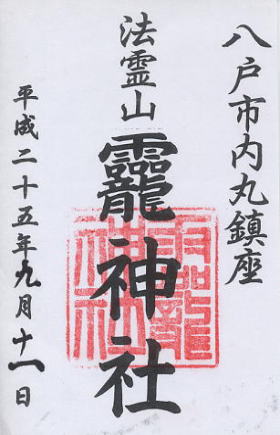 八戸市内丸鎮座
法霊山
龗神社
平成二十五年九月十一日